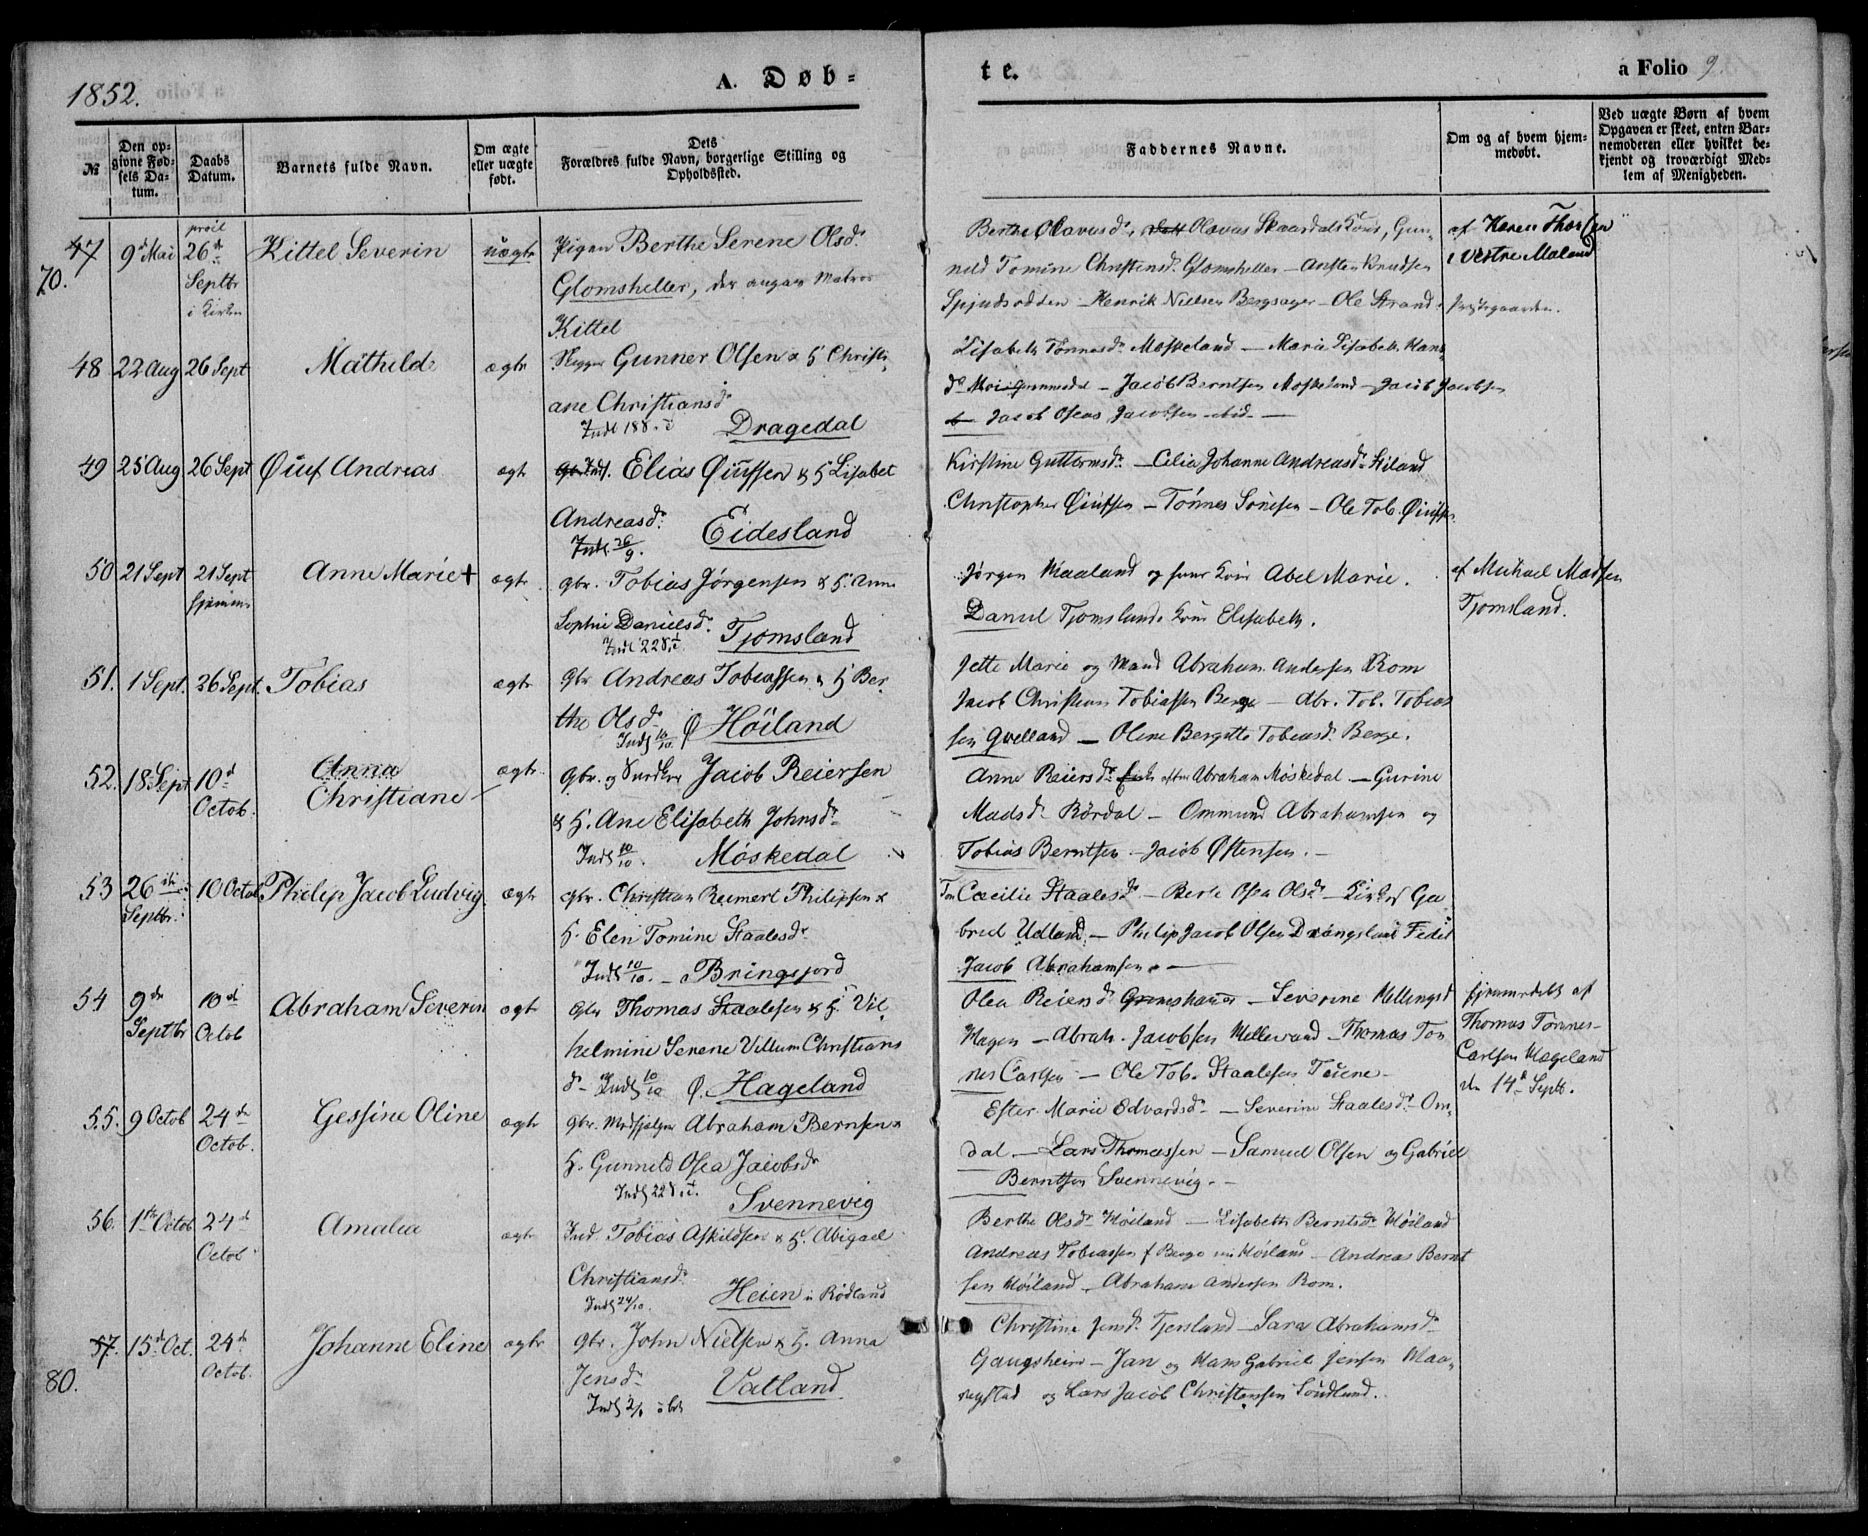 1852.
A. Døb-
te.
a Folio 9.
№
Den op-
givne Fød-
sels Da-
tum.
Daabs
Datum.
Barnets fulde Navn.
Om ægte
eller uægte
født.
Dets
Forældres fulde Navn, borgerlige Stilling og
Opholdssted.
Faddernes Navne.
Om og af hvem hjem-
medøbt.
Ved uægte Børn af hvem
Opgaven er skeet, enten Bar-
nemoderen eller hvilket be-
kjendt og troværdigt Med-
lem af Menigheden.
47
70.
9d Mai
26de
Septbr
i Kirken
Kittel Severin
uægte
Pigen Berthe Serene Olsdr
Glomsheller, der angav Matros
Kittel
Berthe Olavusdr, Olavus Skaardals Kone, Gun-
nild Tomine Christensdr Glomsheller - Ansten Knudsen
Spjudsodden - Henrik Nielsen Bergsager - Ole Strand
af Karen Thorsen
i Vestre Maland
Præstegaarden.
48
22 Aug
26 Sept
Mathilde
ægte
Gunner Olsen & H. Christi-
ane Christiansdr
Dragedal
Lisabeth Tønnesdr Moskeland - Marie Lisabeth Hans
dr Moi - Jacob Berntsen Moskeland - Jacob Jacobsen
Jacob Oseas Jacobsen ibid -
49
25 Aug
26 Sept
Øiuf Andreas
ægte
Elias Øiufsen & H. Lisabet
Andreasdr
Inds. 26/9.
Eidesland
Kirstine Guttormsdr - Celia Johanne Andreasdr Stiland
Christopher Øiufsen - Tønnes Sørensen - Ole Tob. Øiufsen
50
21 Sept
21 Sept
hjemme
Anne Marie +
ægte
gbr. Tobias Jørgensen & H. Anne
Sophie Danielsdr
Tjomsland
Jørgen Maaland og hans Kone Abel Marie.
Daniel Tjomslands Kone Elisabeth.
af Michael Madsen
Tjomsland.
51.
1 Sept.
26 Sept.
Tobias
ægte
gbr Andreas Tobiassen & H. Ber-
the Olsdr
Inds 10/10
Ø Høiland
Jette Marie og Mand Abraham Andersen Rom
Jacob Christian Tobiassen Berge - Abr. Tob. Tobias
sen Qvelland - Olene Bergitte Tobiasdr Berge.
52.
18 Sept
10d
Octob.
Anna
Christiane
ægte
gbr. og Jacob Reiersen
& H. Ane Elisabeth Johnsdr
Inds 10/10.
Møskedal
Anne Reiersdr Enke efter Abraham Møskedal - Gurine
Madsdr Rørdal - Ommund Abrahamsen og
Tobias Berntsen - Jacob Østensen. -
53
26de
Septbr.
10 Octob
Philip Jacob Ludvig
ægte
gbr. Christian Reinert Philipsen &
H. Elen Tomine Staalesdr
Inds 10/10. - Bringsjord
Cæcilie Staalesdr - Berte Osea Olsdr - Ga-
briel Udland - Philip Jacob Olsen Drangsland
Jacob Abrahamsen. -
54
9de
Septbr
10d
Octob
Abraham Severin
ægte
gbr Thomas Staalesen & H. Vil-
helmine Serene Villum Christians
dr - Inds 10/10 Ø. Hageland
Olea Reiersdr - Severine Hellingsd
Hagen - Abrah. Jacobsen Hellevand - Thomas Ton
nes Carlsen - Ole Tob. Staalesen -
hjemmedøbt af
Thomas Tønnes-
Carlsen Hægeland
den 14de Septb.
55.
9 Octob
24de
Octob.
Gessine Oline
ægte
gbr. Medhjelper Abraham Bernsen &
H. Gunneld Osea Jacobsdr
Svennevig
Ester Marie Edvardsdr - Severine Staalesdr Om-
dal - Lars Thomassen - Samuel Olsen og Gabriel
Berntsen Svennevig. -
56.
1ste Octob
24d
Octob.
Amalia
ægte
Ind. Tobias Askildsen & H. Abigael
Christiansdr
Inds 24/10.
Heien i Rødland
Berthe Olsdr Høiland - Lisabeth Berntsdr Høiland
Andreas Tobiassen f Berge nu Høiland - Andreas Bernt
sen Høiland - Abraham Andersen Rom.
57.
80.
15d Oct.
24d
Octob.
Johanne Eline
ægte
gbr. John Nielsen & H. Anna
Jensdr
Vatland
Christine Jensdr Tjersland - Sara Abrahamsdr
Gaugsheim - Jan og Hans Gabriel Jensen Haa-
rygstad og Lars Jacob Christensen Sørdlund.